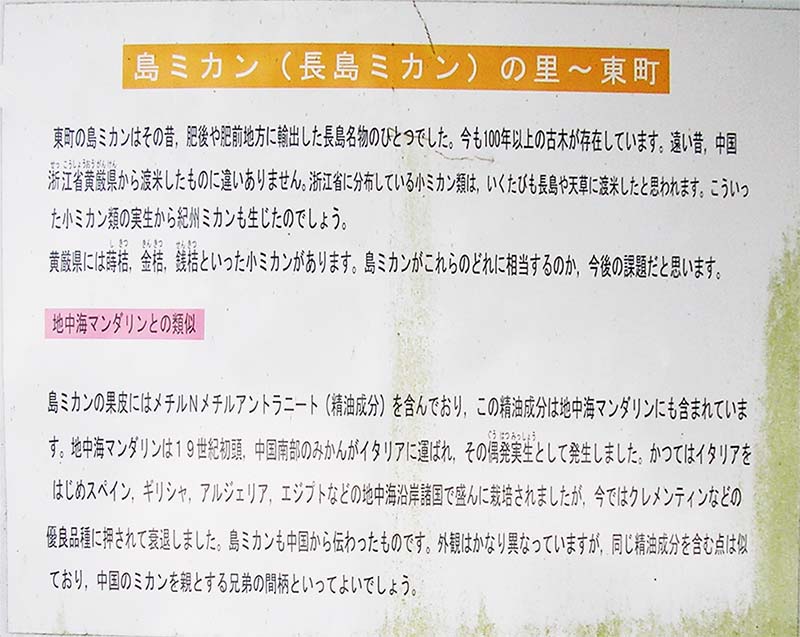 島ミカン（長島ミカン）の里～東町
東町の島ミカンはその昔，肥後や肥前地方に輸出した長島名物のひとつでした。今も100年以上の古木が存在しています。遠い昔，中国
せっこうしょうおうがんけん
浙江省黄厳県から渡米したものに違いありません。浙江省に分布している小ミカン類は，いくたびも長島や天草に渡米したと思われます。こういっ
た小ミカン類の実生から紀州ミカンも生じたのでしょう。
しきつ きんきつ せんきつ
黄厳県には蒔桔，金桔，銭桔といった小ミカンがあります。島ミカンがこれらのどれに相当するのか，今後の課題だと思います。
地中海マンダリンとの類似
島ミカンの果皮にはメチルＮメチルアントラニート（精油成分）を含んでおり，この精油成分は地中海マンダリンにも含まれていま
ぐうはつみっしょう
す。地中海マンダリンは１９世紀初頭，中国南部のみかんがイタリアに運ばれ，その偶発実生として発生しました。かつてはイタリアを
はじめスペイン，ギリシャ，アルジェリア，エジプトなどの地中海沿岸諸国で盛んに栽培されましたが，今ではクレメンティンなどの
優良品種に押されて衰退しました。島ミカンも中国から伝わったものです。外観はかなり異なっていますが，同じ精油成分を含む点は似
ており，中国のミカンを親とする兄弟の間柄といってよいでしょう。